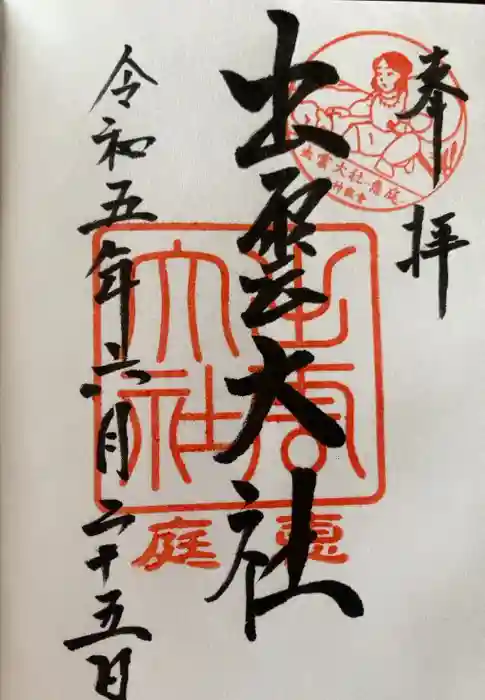 奉拝
出雲大社
令和五年六月二十五日
出雲大社
恵庭
出雲大社・恵庭